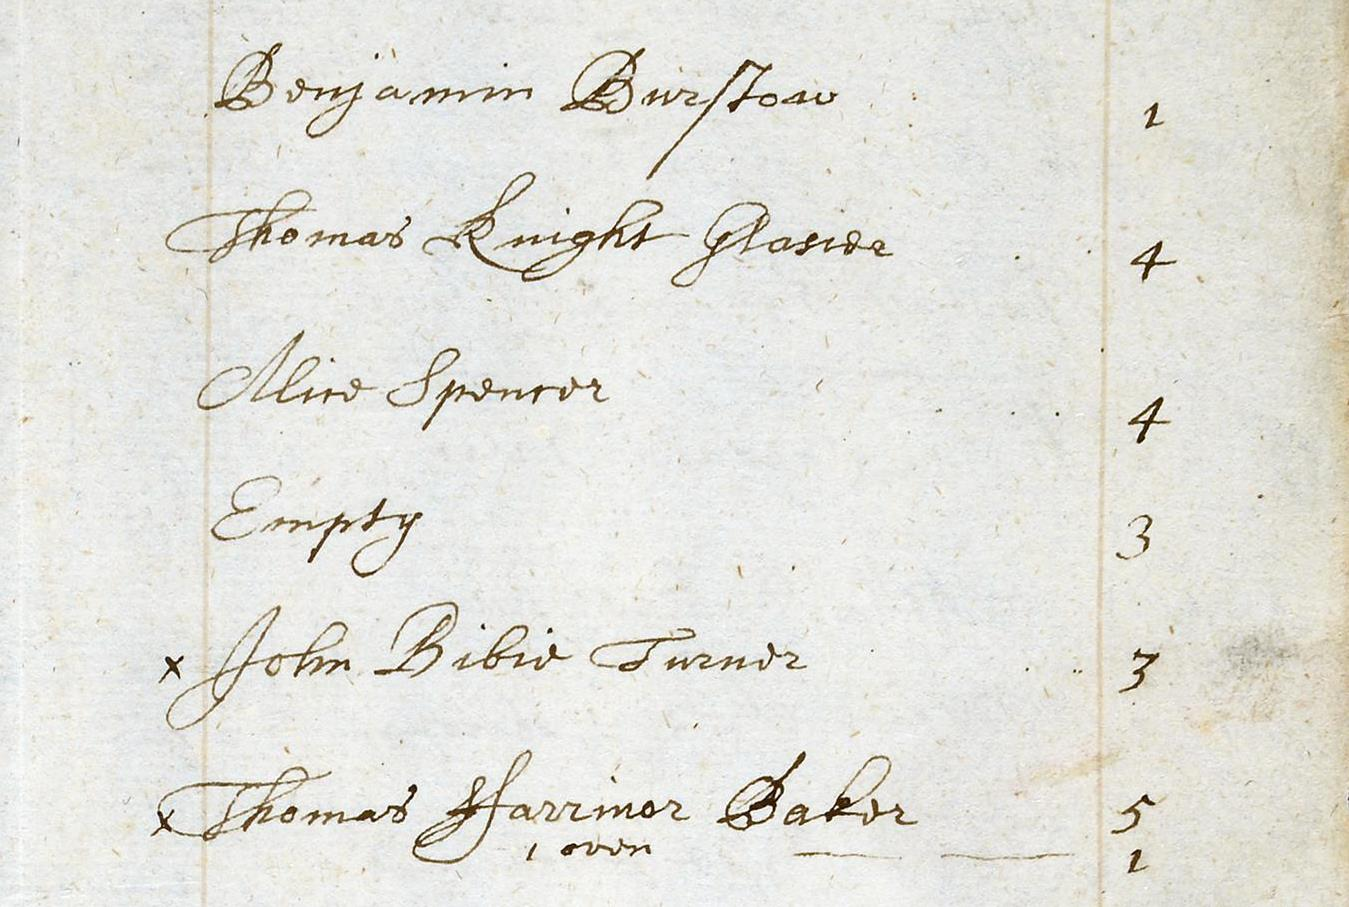 Benjamin Burstow 1
Thomas Knight Glasier 4
Alice Spencer 4
Empty 3
x John Bibie Turner 3
x Thomas Farriner Baker 5
1 oven 1